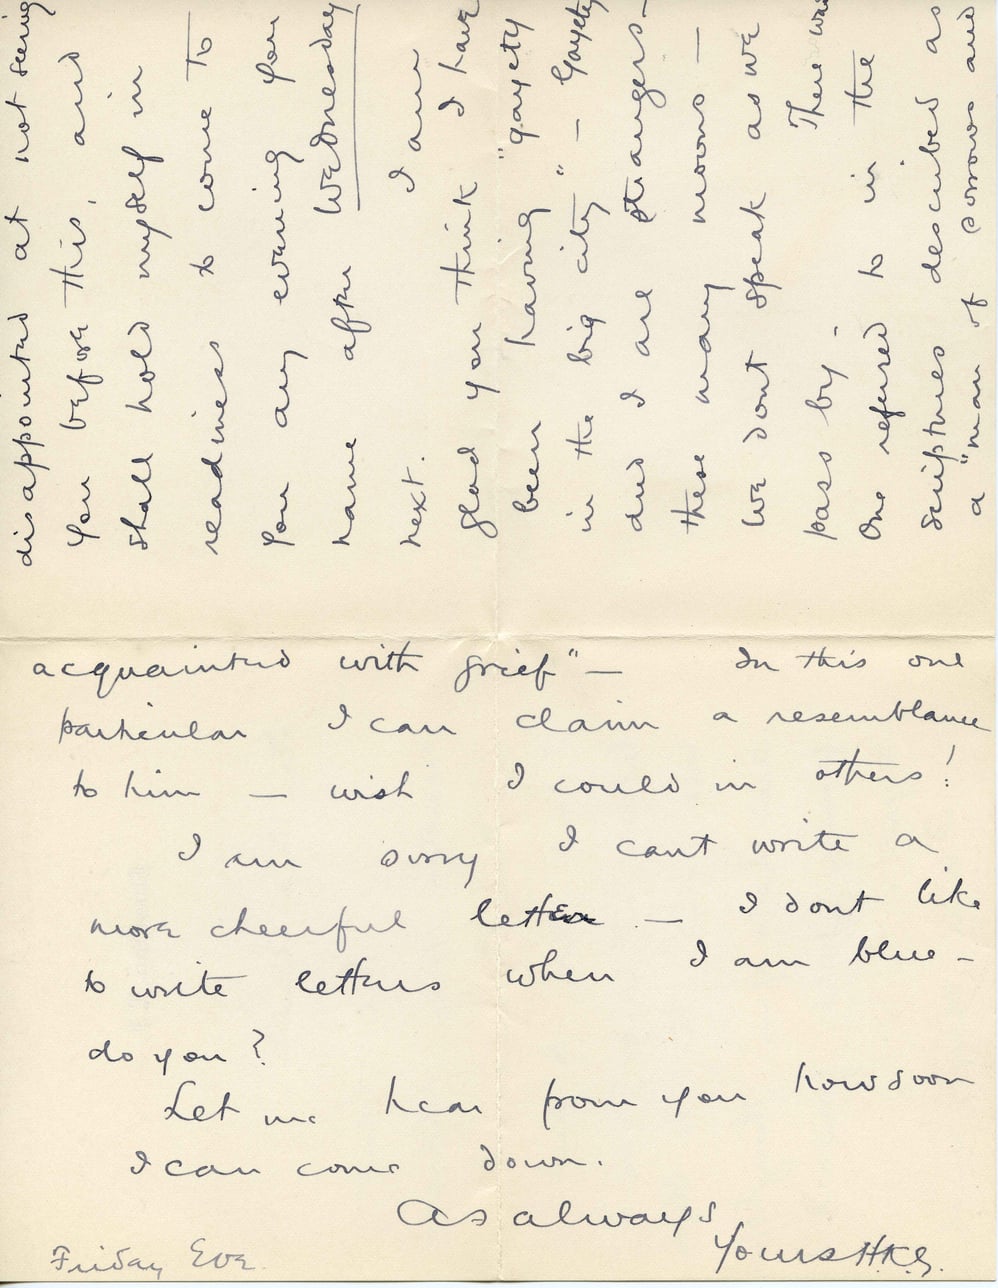 disappointed at not seeing
you before this, and
shall hold myself in
readiness to come to
you any evening you
name after Wednesday
next. I am
glad you think I have
been having "gayety
in the big city" - Gayety
and I are strangers -
these many moons -
we dont speak as we
pass by - There was
One refered to in the
scriptures described as
a "man of sorrows and
acquainted with grief" - In this one
particular I can claim a resemblance
to him - wish I could in others!
I am sorry I cant write a
more cheerful letter - I dont like
to write letters when I am blue -
do you?
Let me hear from you how soon
I can come down.
As always
Yours H.K.G.
Friday Eve.